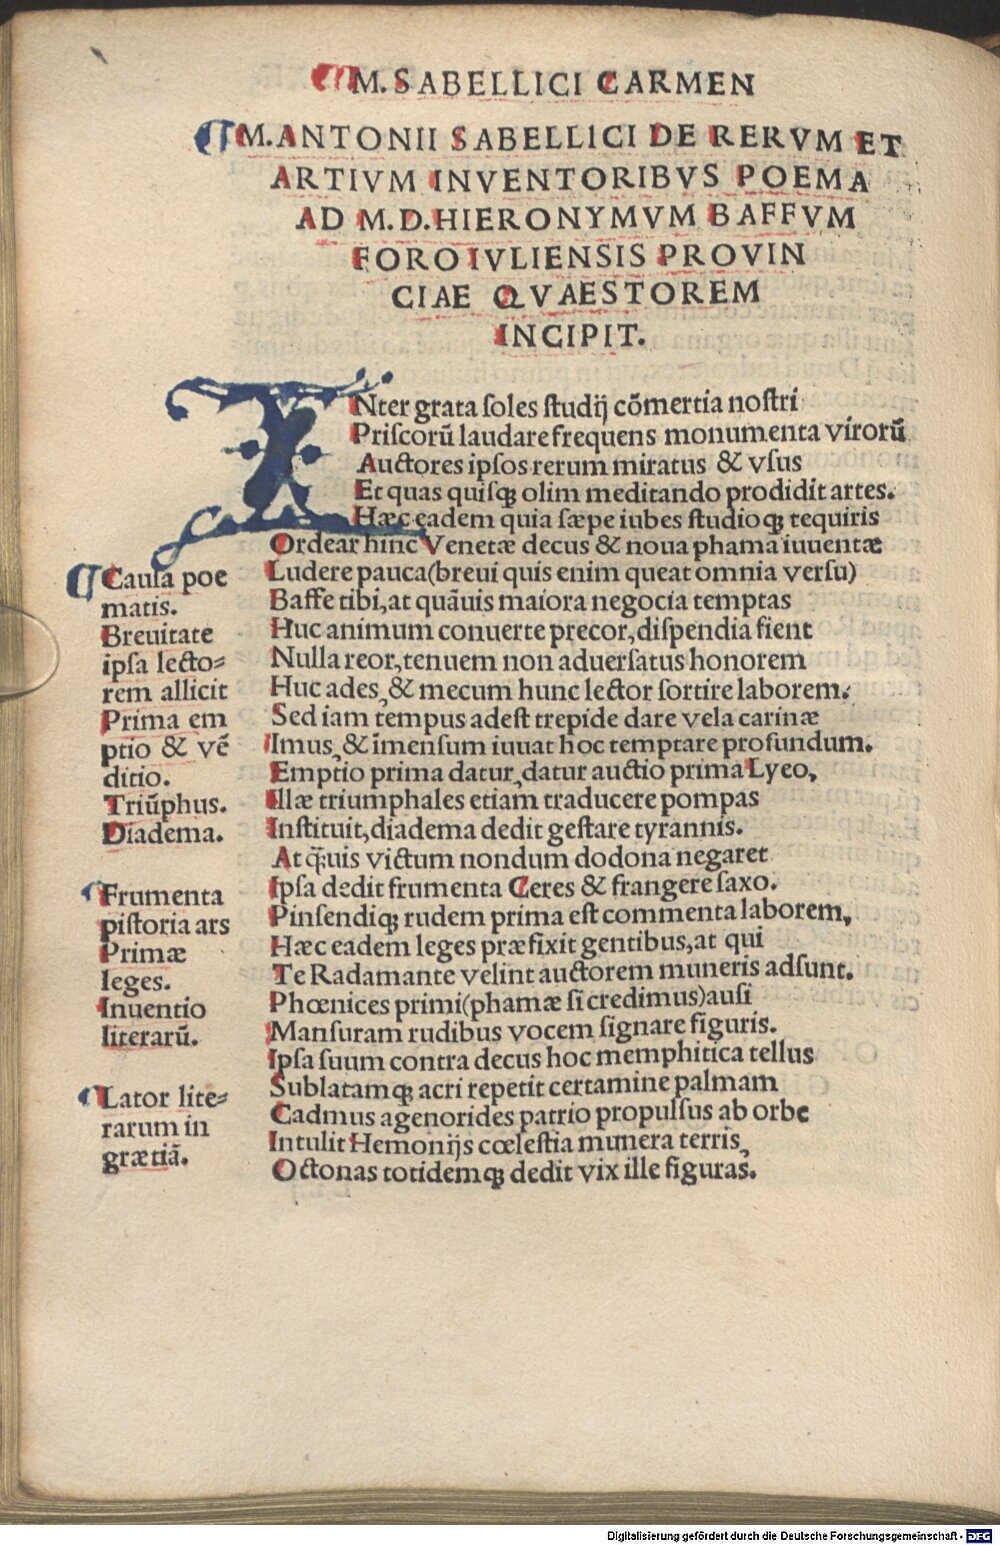 M. SABELLICI CARMEN
M. ANTONII SABELLICI DE RERVM ET
ARTIVM INVENTORIBVS POEMA
AD M. D. HIERONYMVM BAFFVM
FORO IVLIENSIS PROVIN
CIAE QVAESTOREM
INCIPIT.
INter grata ſoles ſtudij cōmertia noſtri
Priſcorū laudare frequens monumenta virorū
Auctores ipſos rerum miratus & vſus
Et quas quiſqꝫ olim meditando prodidit artes.
Hæc eadem quia ſæpe iubes ſtudioqꝫ requiris
Ordear hinc Venetæ decus & noua phama iuuentæ
Ludere pauca(breui quis enim queat omnia verſu)
Baffe tibi,at quāuis maiora negocia temptas
Huc animum conuerte precor,diſpendia fient
Nulla reor,tenuem non aduerſatus honorem
Huc ades, & mecum hunc lector ſortire laborem.
Sed iam tempus adeſt trepide dare vela carinæ
Imus, & īmenſum iuuat hoc temptare profundum.
Emptio prima datur,datur auctio prima Lyeo,
Illæ triumphales etiam traducere pompas
Inſtituit,diadema dedit geſtare tyrannis.
At q̄uis victum nondum dodona negaret
Ipſa dedit frumenta Ceres & frangere ſaxo.
Pinſendiqꝫ rudem prima eſt commenta laborem,
Hæc eadem leges præfixit gentibus,at qui
Te Radamante velint auctorem muneris adſunt.
Phœnices primi(phamæ ſi credimus)auſi
Manſuram rudibus vocem ſignare figuris.
Ipſa ſuum contra decus hoc memphitica tellus
Sublatamqꝫ acri repetit certamine palmam
Cadmus agenorides patrio propulſus ab orbe
Intulit Hemonijs cœleſtia munera terris,
Octonas totidemqꝫ dedit vix ille figuras.
Cauſa poe
matis.
Breuitate
ipſa lecto⸗
rem allicit
Prima em
ptio & vē
ditio.
Triūphus.
Diadema.
Frumenta
piſtoria ars
Primæ
leges.
Inuentio
literarū.
Lator lite⸗
rarum in
grætiā.
Digitalisierung gefördert durch die Deutsche Forschungsgemeinschaft - DFG